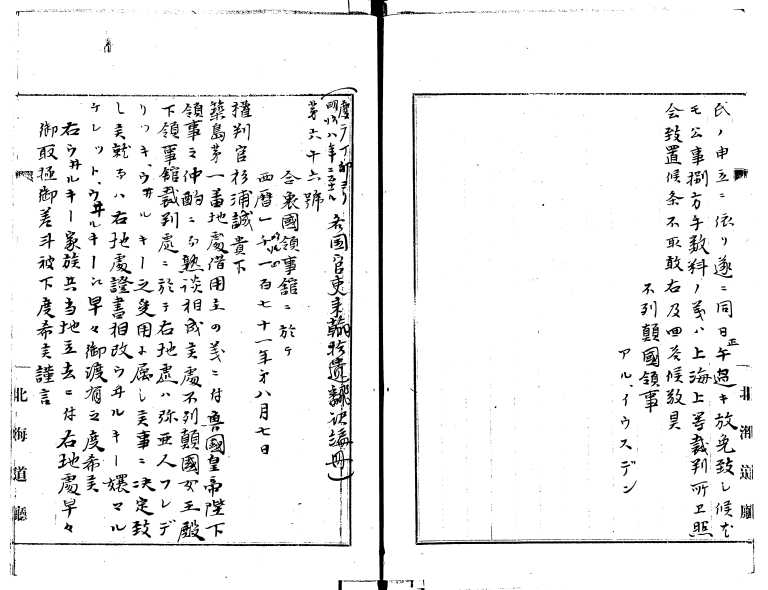 氏ノ申立ニ依リ遂ニ同日午正過キ放免致し候尤
モ公事捌方手数料ノ義ハ上海上等裁判所ヱ照
会致置候条不取敢右及回答候敬具
不列顛國領事
アルイウスデン
北海道廳
各国官吏来翰
第六十六號
合衆國領事館ニ於テ
西暦一千八百七十一年第八月七日
權判官杉浦誠貴下
築島第一番地處借用主の義ニ付魯國皇帝陛下
領事之仲酌ニ而熟談相成候處不列顛國女王殿
下領事館裁判處ニ於テ右地處ハ弥亜人フレデ
リツキ、ウヰルキー之受用ニ属し候事ニ決定致
し候就而ハ右地處證書相改ウヰルキー孃マル
ゲレット、ウヰルキーニ早々御渡有之度希候
右ウヰルキー家族共当地立去ニ付右地處早々
御取極御差斗被下度希候謹言
北海道廳